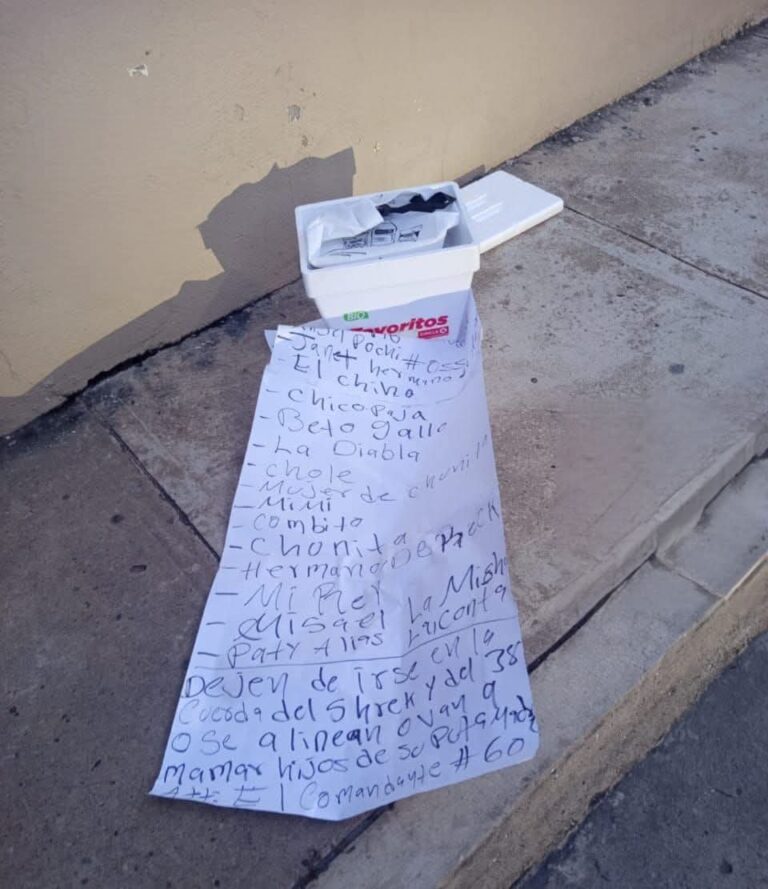 BIO
Favoritos
CIRCLE K
- Janet Pochi #055
- El chino hermano
- Chicopaja
- Beto gallo
- La Diabla
- chole
- Mujer de chonita
- Mimi
- Combito
- Chonita
- Hermano De
- Mi Rey
- Misael La Misha
- Paty Alias
Dejen de irse en la
Cuerda del Shrek y del 38
o se alinean o van a
mamar hijos de su Puta Madre
Att: El Comandante #60